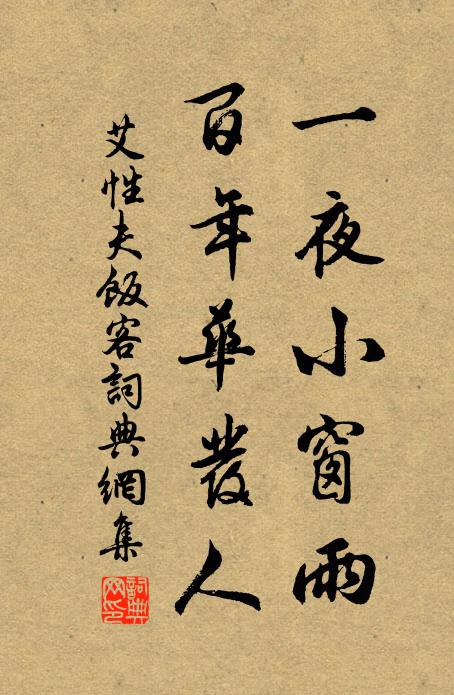 一夜小窗雨
百年華發人
艾性夫飯客詞典網集
詞典網印